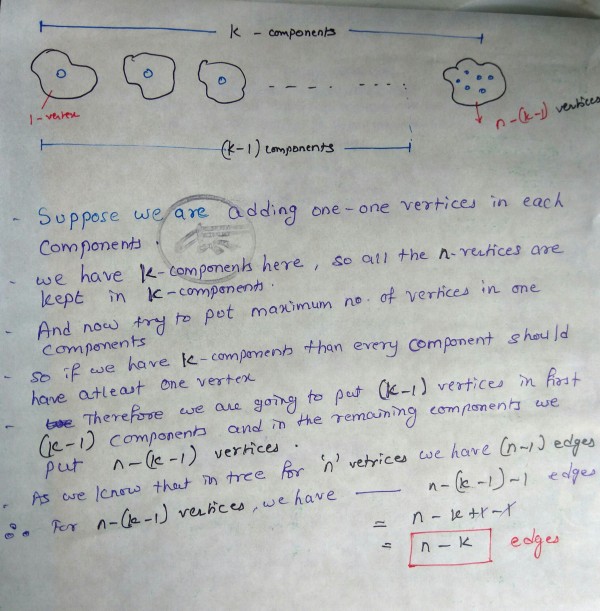 k - components
1-vertex
n-(k-1) vertices
(k-1) components
- Suppose we are adding one-one vertices in each
components.
- we have k-components here, so all the n-vertices are
kept in k-components.
- And now try to put maximum no. of vertices in one
components
- so if we have k-components than every component should
have atleast one vertex
- Therefore we are going to put (k-1) vertices in first
(k-1) components and in the remaining components we
put n-(k-1) vertices.
- As we know that in tree for 'n' vetrices we have (n-1) edges
∴ For n-(k-1) vertices, we have — n-(k-1)-1 edges
= n-k+1-1
= n-k edges